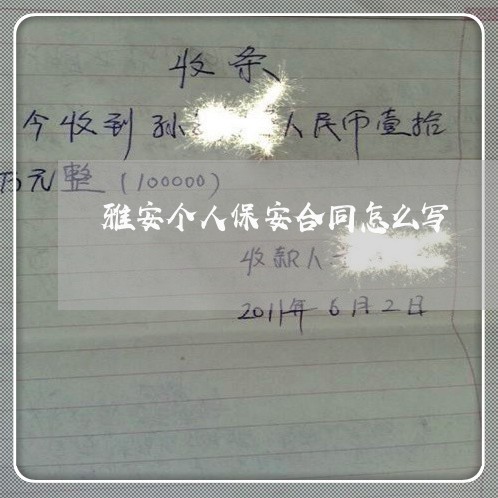 收条
今收到孙 人民币壹拾
万元整(100000)
雅安个人保安合同怎么写
收款人
2011年6月2日